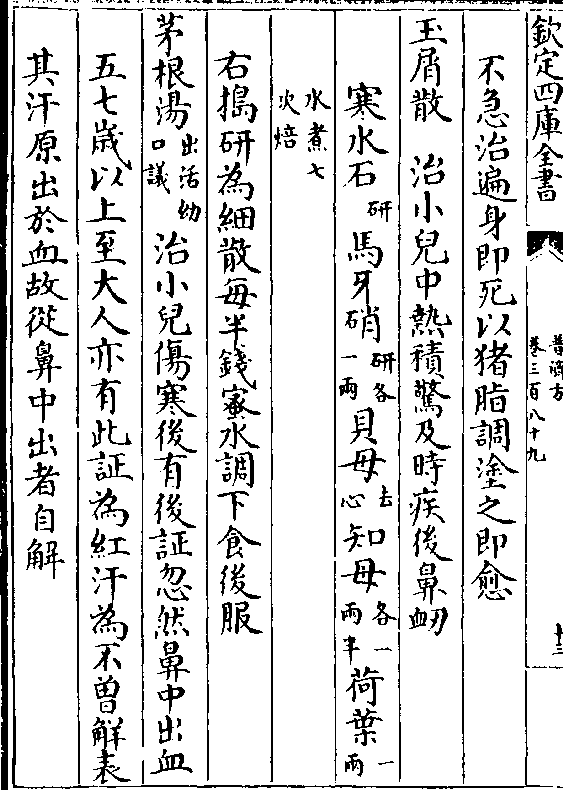 欽定四庫全書
普濟方
卷三百八十九
十三
不急治遍身即死以猪脂調塗之即愈
玉屑散 治小兒中熱積驚及時疾後鼻衂
寒水石研 馬牙硝研各一兩 貝母去心 知母各一兩半 荷葉一兩
水煮七次焙
右搗研為細散每半錢蜜水調下食後服
茅根湯出活幼口議 治小兒傷寒後有後証忽然鼻中出血
五七歳以上至大人亦有此証為紅汗為不曽觧表
其汗原出於血故從鼻中出者自解